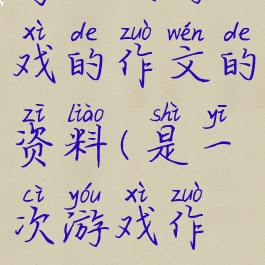 xì de zuò wén de
戏的作文的
zī liào shì yī
资料(是一
cì yóu xì zuò
次游戏作